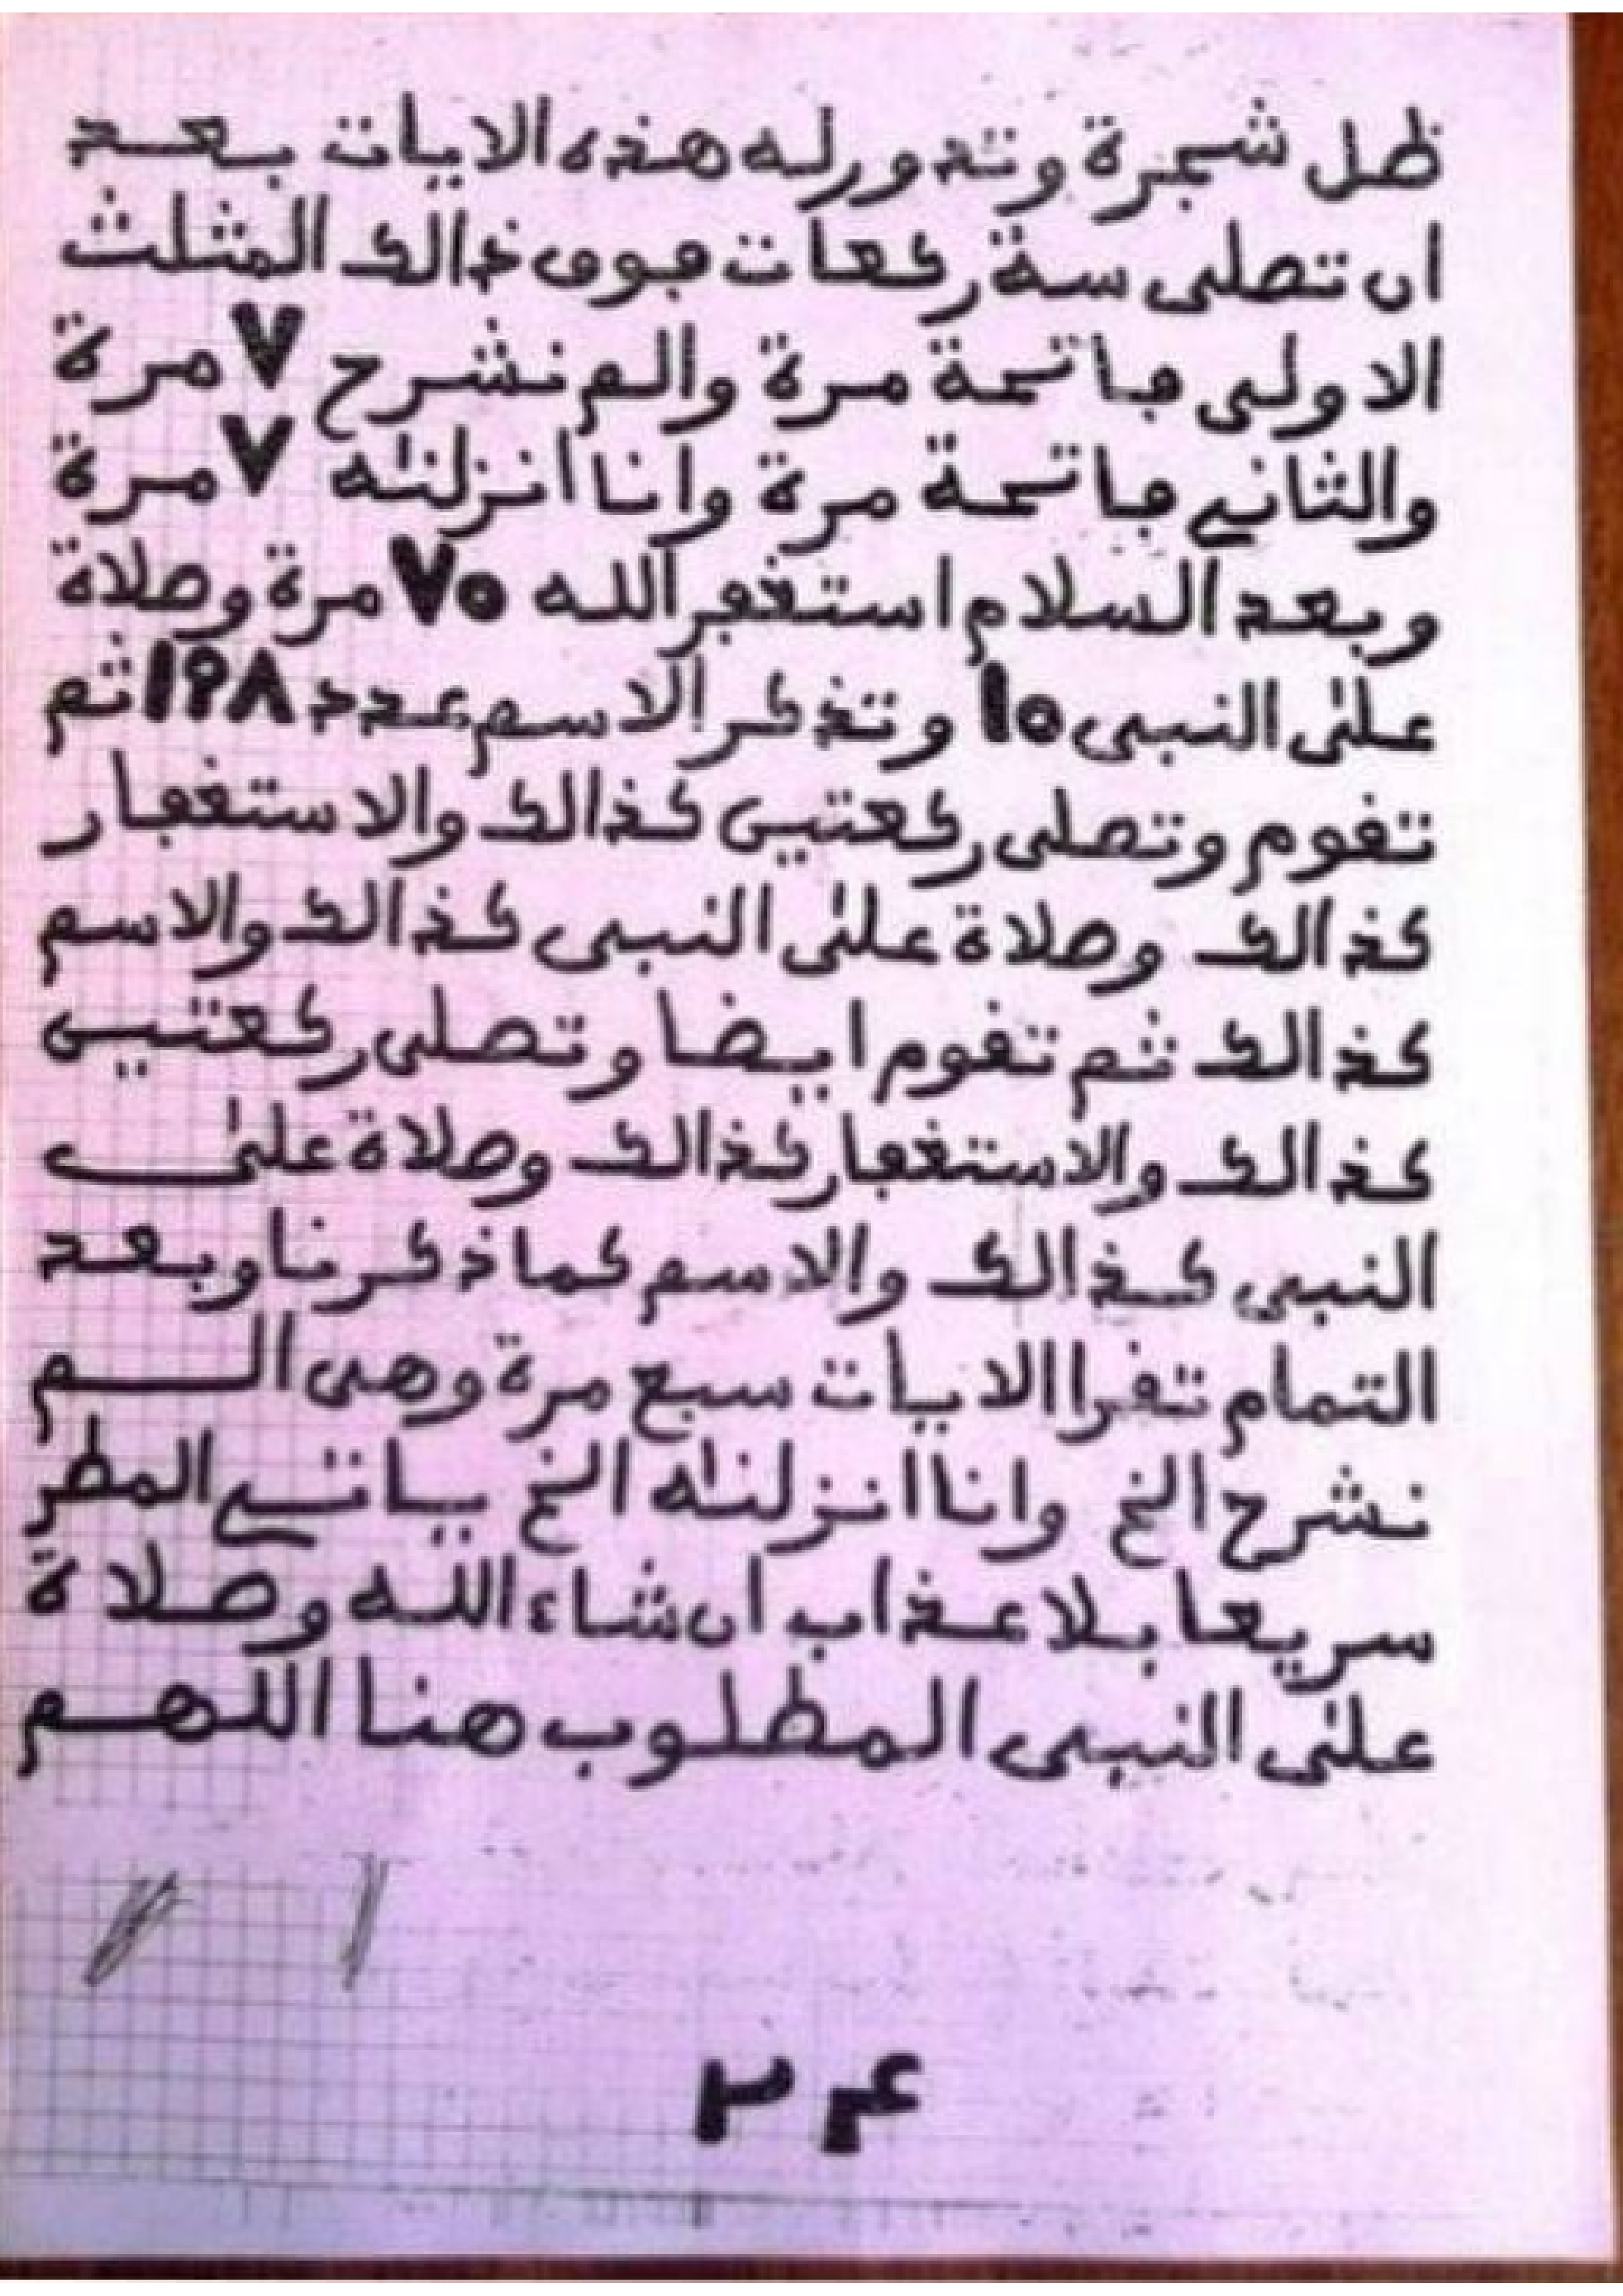 ظل شجرة وتدور له هذه الايات بعد
ان تصلى ستة ركعات فوق ذالك المثلث
الاولى فاتحة مرة والم نشرح ٧ مرة
والثاني فاتحة مرة وانا انزلنٰه ٧ مرة
وبعد السلام استغفر الله ٧٥ مرة وصلاة
علىٰ النبى ١٥ وتذكر الاسم عدد ١٩٨ ثم
تقوم وتصلى ركعتين كذالك والاستغفار
كذالك وصلاة علىٰ النبى كذالك والاسم
كذالك ثم تقوم ايضا وتصلى ركعتين
كذالك والاستغفار كذالك وصلاة علىٰ
النبى كذالك والاسم كما ذكرنا وبعد
التمام تقرا الايات سبع مرة وهى الم
نشرح الخ وانا انزلنٰه الخ ياتي المطر
سريعا بلا عذاب ان شاء الله وصلاة
علىٰ النبى المطلوب هنا اللهم
٢۴